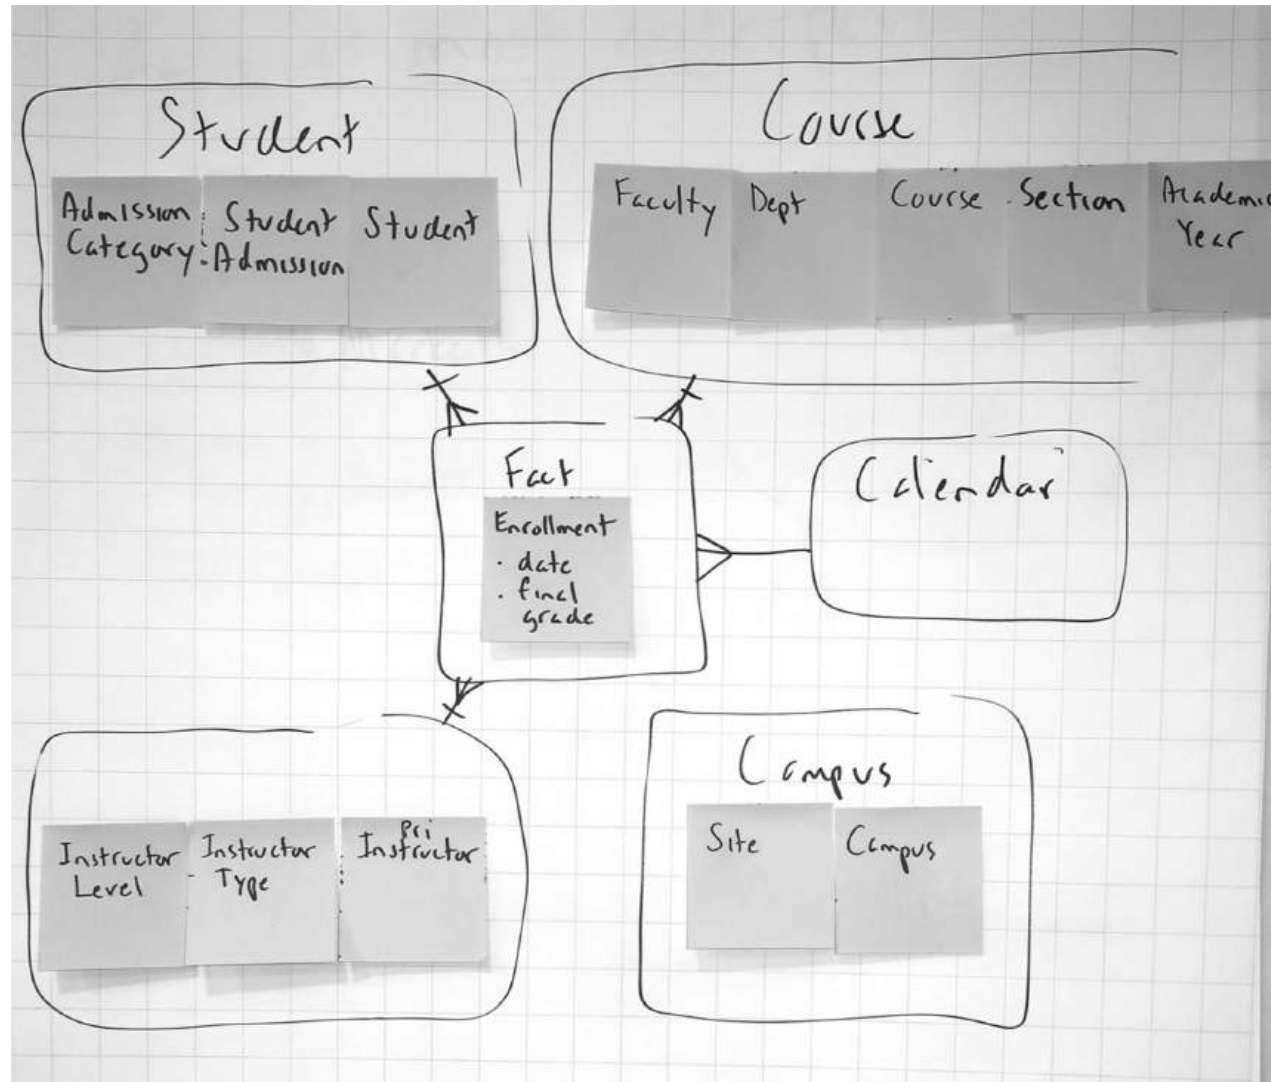 Student
Admission
Category
Student
Admission
Student
Course
Faculty
Dept
Course
Section
Academic
Year
Fact
Enrollment
. date
. final
grade
Calendar
Instructor
Level
Instructor
Type
Pri
Instructor
Campus
Site
Campus